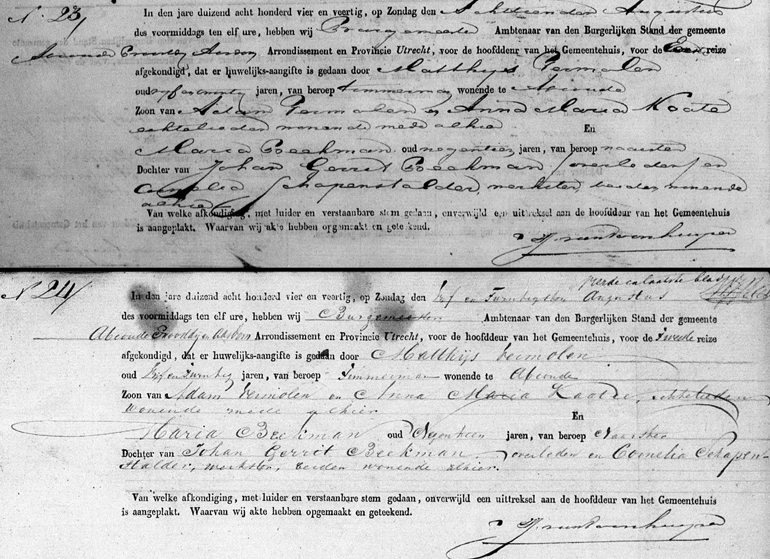 N. 23/
In den jare duizend acht honderd vier en veertig, op Zondag den Achttienden Augustus
des voormiddags ten elf ure, hebben wij Burgemeester Ambtenaar van den Burgerlijken Stand der gemeente
Abcoude Proostdy Arrondissement en Provincie Utrecht, voor de hoofddeur van het Gemeentehuis, voor de Eerste reize
afgekondigd, dat er huwelijks-aangifte is gedaan door Matthys Vermolen
oud jaren, van beroep timmerman wonende te Abcoude
Zoon van Adam Vermolen en Anna Maria Koote
echtelieden wonende mede alhier
En
Maria Beekman oud negentien jaren, van beroep naaister
Dochter van Johan Gerrit Beekman overleden en
Cornelia Schapenstalder, werkster, beiden wonende
alhier
Van welke afkondiging, met luider en verstaanbare stem gedaan, onverwijld een uittreksel aan de hoofddeur van het Gemeentehuis
is aangeplakt. Waarvan wij akte hebben opgemaakt en geteekend.
N. 24/
In den jare duizend acht honderd vier en veertig, op Zondag den Vyf en Twintigsten Augustus
des voormiddags ten elf ure, hebben wij Burgemeester Ambtenaar van den Burgerlijken Stand der gemeente
Abcoude Proostdy Arrondissement en Provincie Utrecht, voor de hoofddeur van het Gemeentehuis, voor de Tweede reize
afgekondigd, dat er huwelijks-aangifte is gedaan door Matthijs Vermolen
oud vyf en twintig jaren, van beroep Timmerman wonende te Abcoude
Zoon van Adam Vermolen en Anna Maria Koote, echtelieden
wonende mede alhier
En
Maria Beekman oud Negentien jaren, van beroep Naaister
Dochter van Johan Gerrit Beekman, overleden en Cornelia Schapen-
stalder, werkster, beiden wonende alhier.
Van welke afkondiging, met luider en verstaanbare stem gedaan, onverwijld een uittreksel aan de hoofddeur van het Gemeentehuis
is aangeplakt. Waarvan wij akte hebben opgemaakt en geteekend.